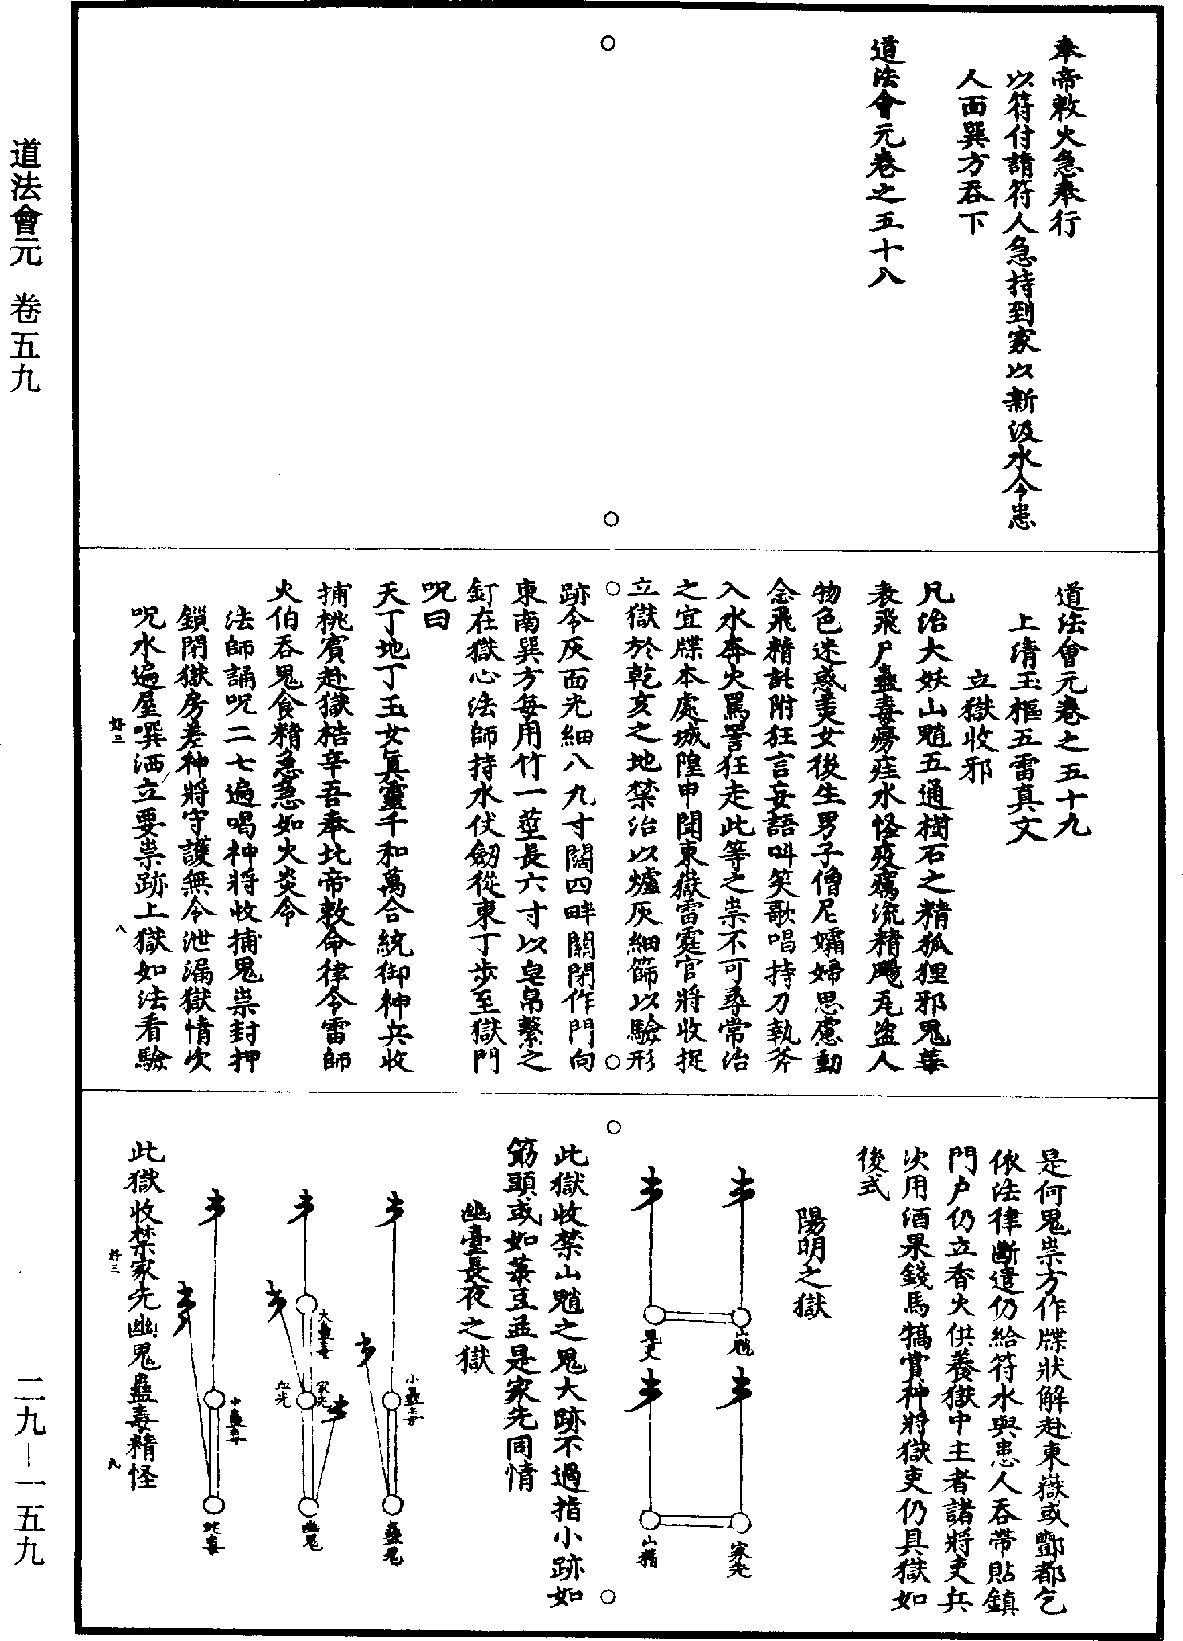 道法會元　卷五九
二九—一五九
奉帝敕火急奉行
以符付請符人急持到家以新汲水令患
人面巽方吞下
道法會元卷之五十八
道法會元卷之五十九
上清玉樞五雷真文
立獄收邪
凡治大妖山魈五通樹石之精狐狸邪鬼墓
表飛尸蠱毒癆疰水怪疫癘流精颺瓦盜人
物色迷惑美女後生男子僧尼孀婦思慮動
金飛精託附狂言妄語叫笑歌唱持刀執斧
入水奔火罵詈狂走此等之祟不可尋常治
之宜牒本處城隍申聞東嶽雷霆官將收捉
立獄於乾亥之地禁治以爐灰細篩以驗形
跡令灰面光細八九寸闊四畔關閉作門向
東南巽方每用竹一莖長六寸以皂帛繫之
釘在獄心法師持水伏劒從東丁步至獄門
呪曰
天丁地丁玉女真靈千和萬合統御神兵收
捕桃賓赴獄梏辛吾奉北帝敕命律令雷師
火伯吞鬼食精急急如火炎令
法師誦呪二七遍喝神將收捕鬼祟封押
鎖閉獄房差神將守護無令泄漏獄情次
呪水遍屋噀洒立要祟跡上獄如法看驗
好三
八
是何鬼祟方作牒狀解赴東嶽或酆都乞
依法律斷遣仍給符水與患人吞帶貼鎮
門戶仍立香火供養獄中主者諸將吏兵
次用酒果錢馬犒賞神將獄吏仍具獄如
後式
陽明之獄
山魈
山精
家先
此獄收禁山魈之鬼大跡不過指小跡如
筯頭或如菉豆並是家先同情
幽臺長夜之獄
小蠱毒
蠱鬼
大蠱毒
家先
幽鬼
中蠱毒
此獄收禁家先幽鬼蠱毒精怪
好三
九